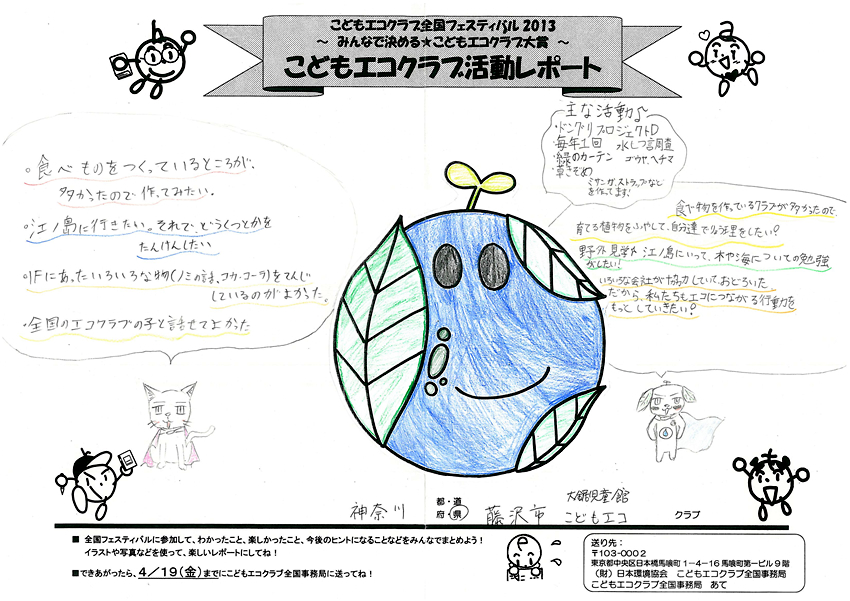 こどもエコクラブ全国フェスティバル 2013
～ みんなで決める★こどもエコクラブ大賞 ～
こどもエコクラブ活動レポート
主な活動♪
・ドングリプロジェクトD
・毎年1回 水しつ調査
・緑のカーテン ゴウヤ、ヘチマ
・草ぞめ
ミサンガ、ストラップなど
を作ってます。
・食べものをつくっているところが、
多かったので作ってみたい。
・江ノ島に行きたい。それで、どうくつとかを
たんけんしたい
・1Fにあったいろいろな物(ノミの詩、コカ・コーラ)をてんじ
しているのがよかった。
・全国のエコクラブの子と話せてよかった
食べ物を作っているクラブが多かったので、
育てる植物をふやして、自分達で料理をしたい?
野外見学や江ノ島にいって、木や海についての勉強
がしたい!
いろいろな会社が協力していて、おどろいた
だから、私たちもエコにつながる行動を
もっとしていきたい?
神奈川 都・道
府・県 藤沢市 大鋸児童館
こどもエコ クラブ
■ 全国フェスティバルに参加して、わかったこと、楽しかったこと、今後のヒントになることなどをみんなでまとめよう!
イラストや写真などを使って、楽しいレポートにしてね!
■できあがったら、4/19(金)までにこどもエコクラブ全国事務局に送ってね!
送り先:
〒103-0002
東京都中央区日本橋馬喰町1-4-16 馬喰町第一ビル9階
(財)日本環境協会 こどもエコクラブ全国事務局
こどもエコクラブ全国事務局 あて